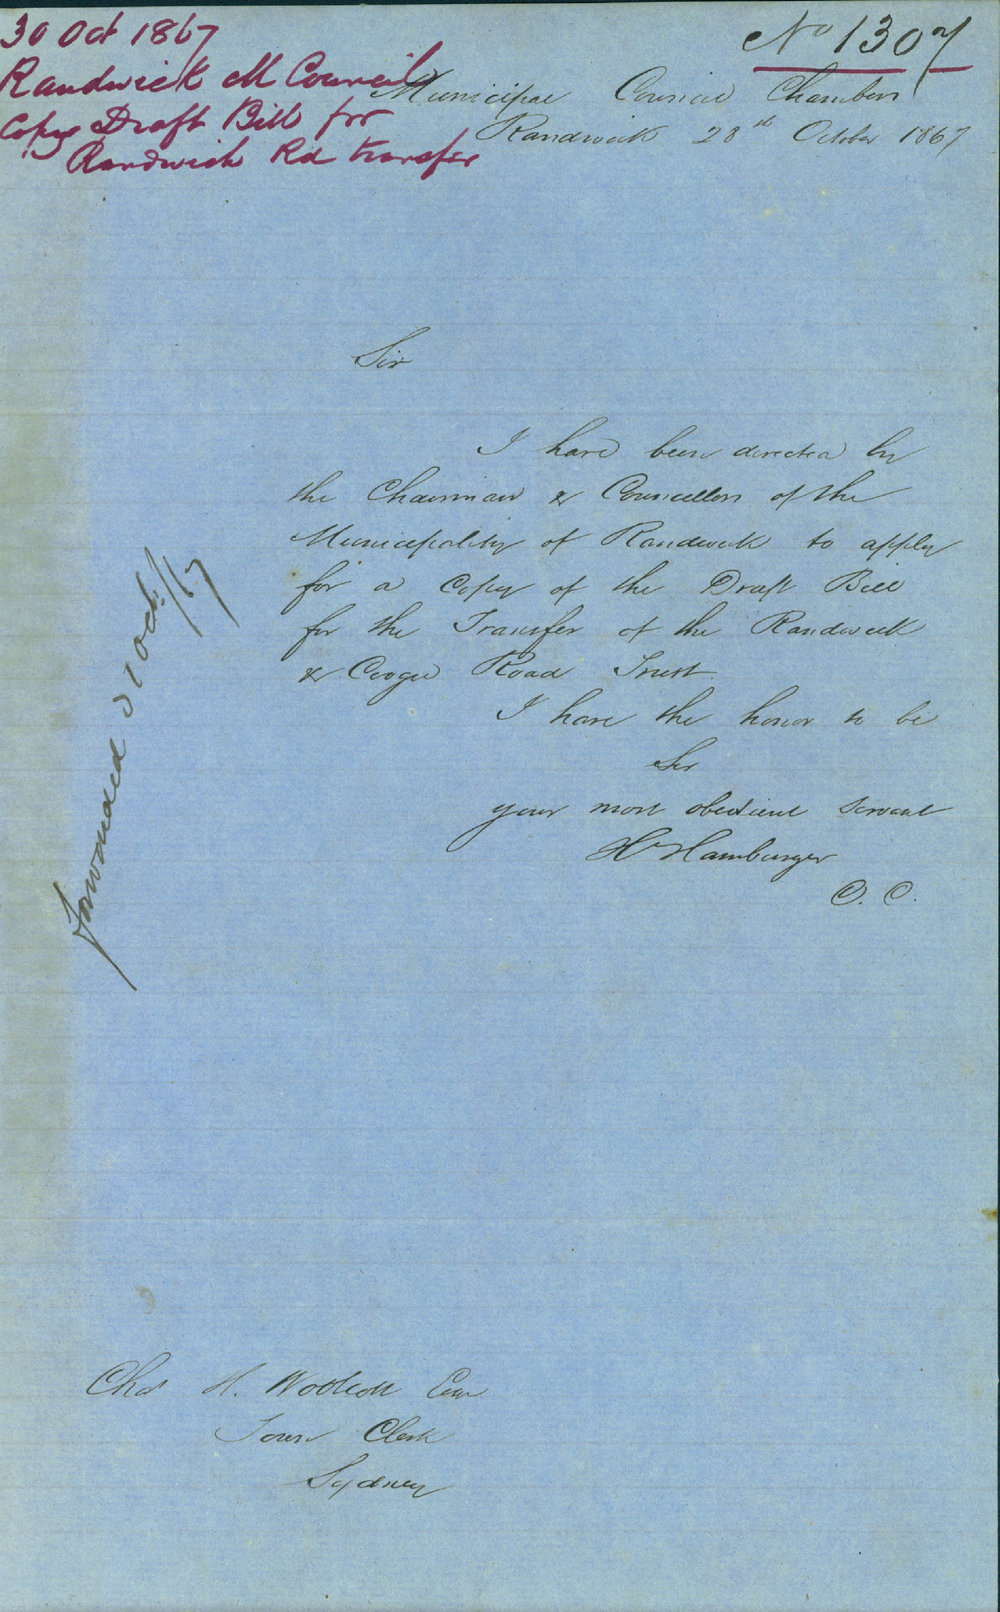 30 Oct 1867
Randwick M Council
Copy Draft Bill for
Randwick Rd transfer
No 1307
Municipal Council Chambers
Randwick 28th October 1867
Sir
I have been directed by
the Chairman & Councillors of the
Municipality of Randwick to apply
for a Copy of the Draft Bill
for the Transfer of the Randwick
& Coogee Road Trust.
I have the honor to be
Sir
your most obedient servant
H Hamburger
C. C.
forwarded 31 Oct/67
Chs H. Woolcott Esqr
Town Clerk
Sydney